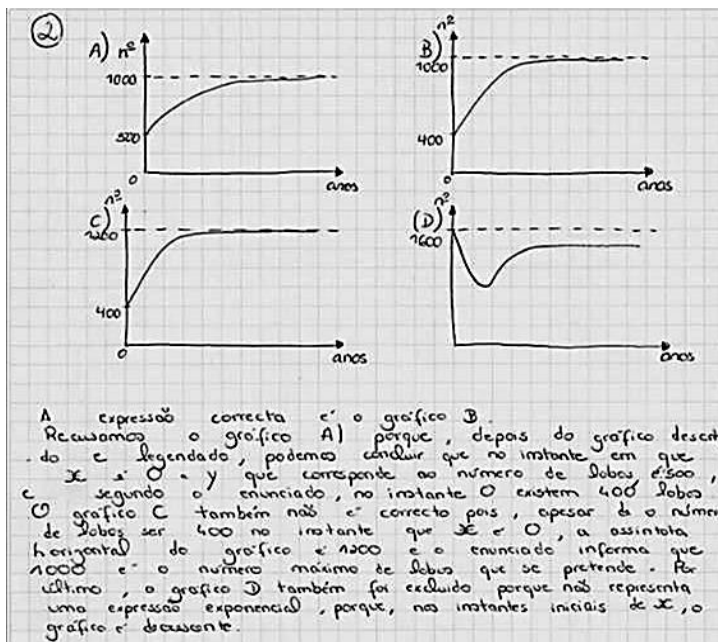 2
A) nº
1000
500
0
anos
B) nº
1000
400
0
anos
C) nº
1200
400
0
anos
(D) nº
1600
anos
A expressaõ correcta e' o gráfico B.
Recusamos o gráfico A) porque, depois do gráfico desenha
do e legendado, podemos concluir que no instante em que
x é 0 o y que corresponde ao número de lobos é 500,
e segundo o enunciado, no instante 0 existem 400 lobos.
O gráfico C também naõ e' correcto pois, apesar de o número
de lobos ser 400 no instante que x é 0, a assintota
horizontal do gráfico é 1200 e o enunciado informa que
1000 é o número maximo de lobos que se pretende. Por
último, o grafico D também foi excluido porque naõ representa
uma expressaõ exponencial, porque, nos instantes iniciais de x, o
gráfico é decrescente.